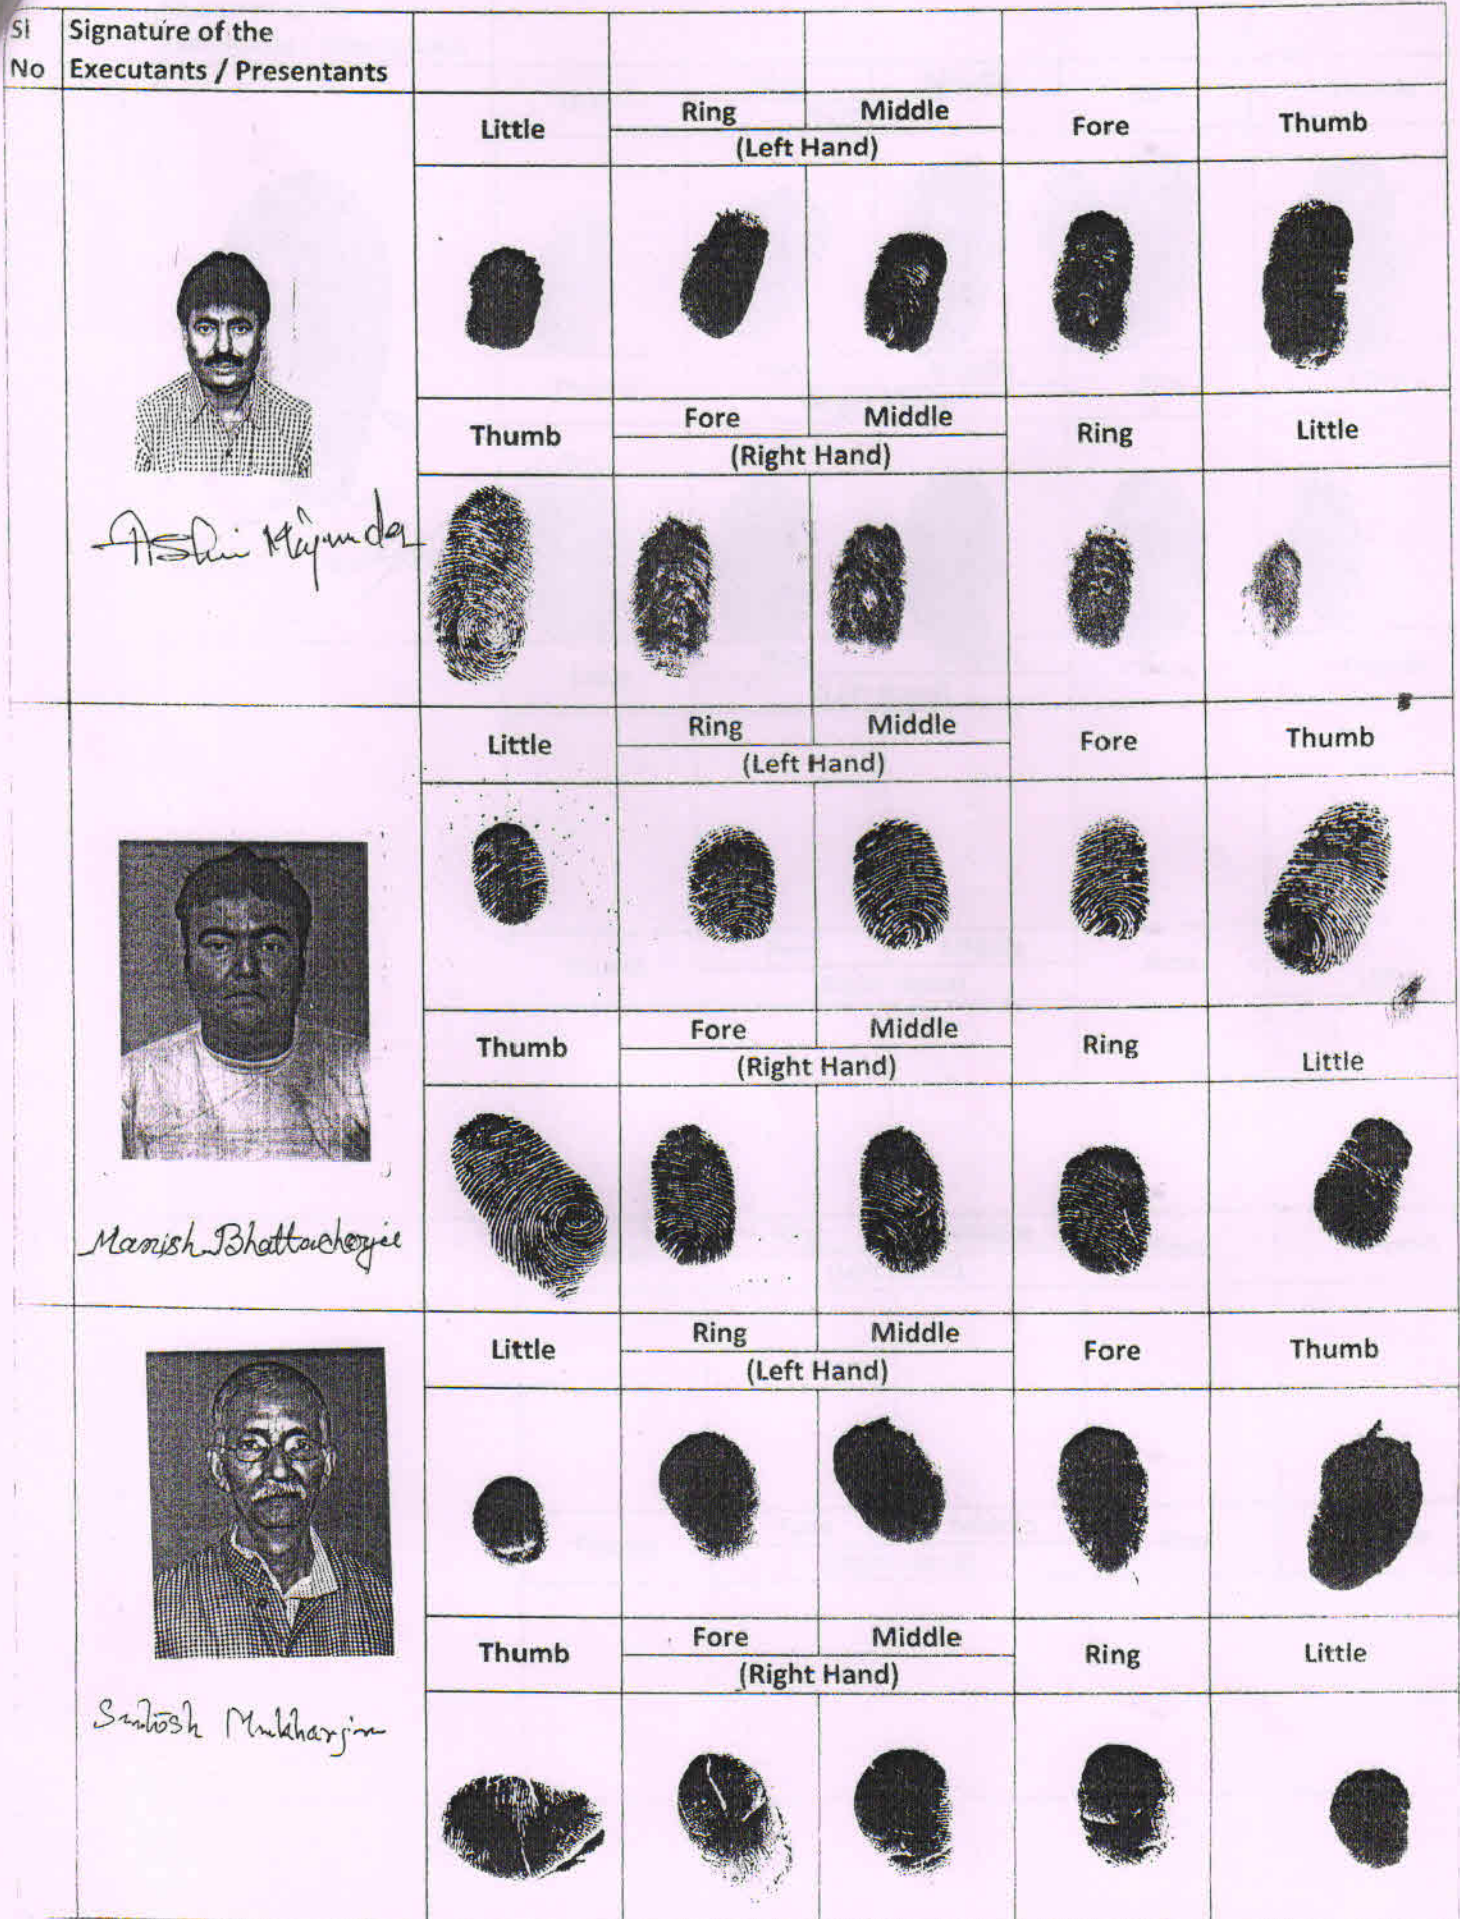 Sl No Signature of the Executants / Presentants
Little Ring Middle Fore Thumb
(Left Hand)
Thumb Fore Middle Ring Little
(Right Hand)
Majumdar
Little Ring Middle Fore Thumb
(Left Hand)
Thumb Fore Middle Ring Little
(Right Hand)
Manish Bhattacherjee
Little Ring Middle Fore Thumb
(Left Hand)
Thumb Fore Middle Ring Little
(Right Hand)
Santosh Mukharjee